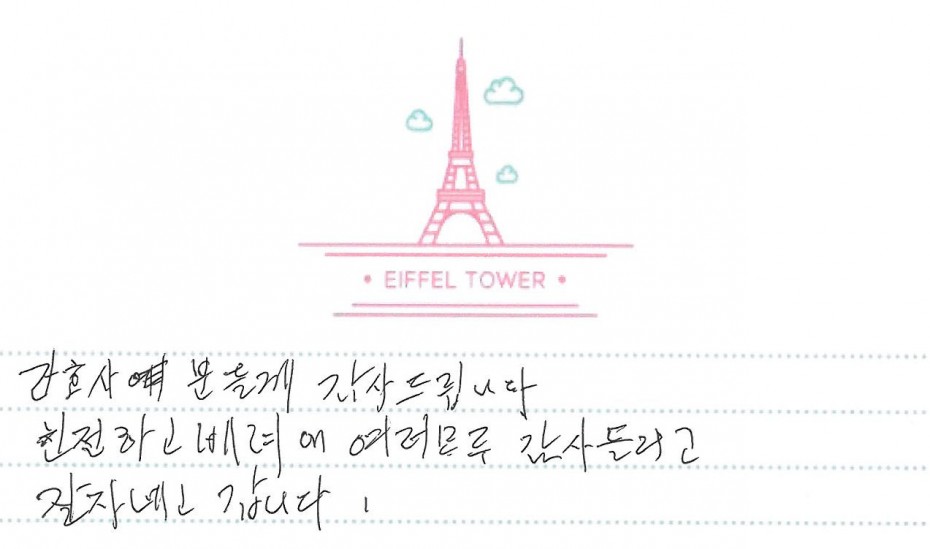 • EIFFEL TOWER •
간호사 분들게 감사드립니다
친절하고 베려에 여러모루 감사들리고
잘지내고 갑니다